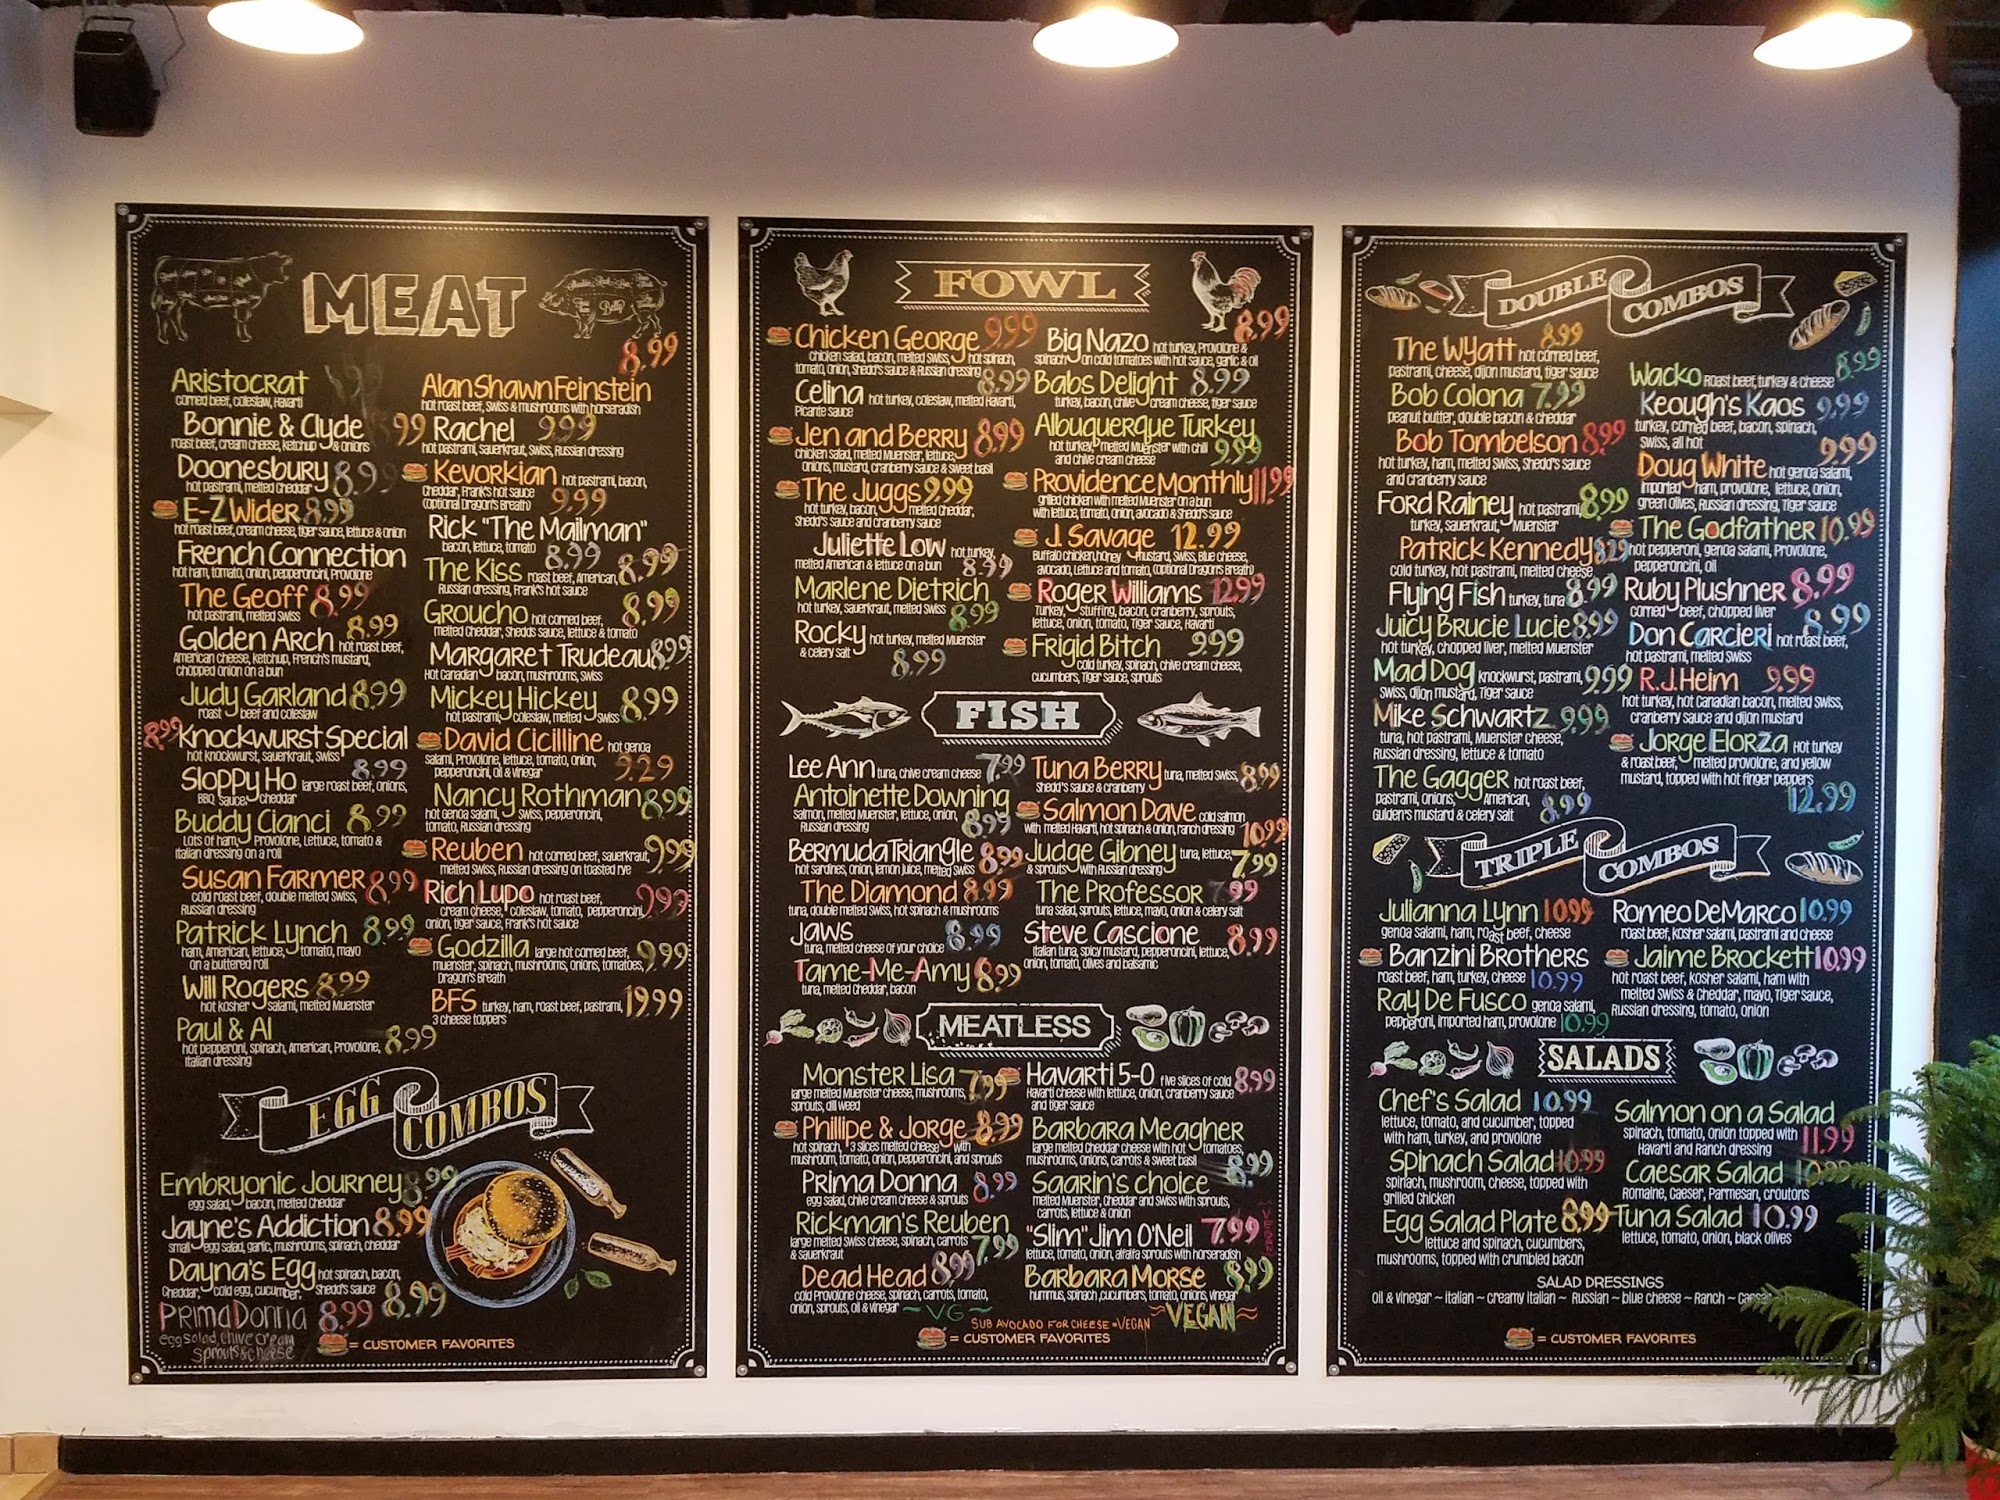 MEAT
Aristocrat
corned beef, coleslaw, Havarti
Bonnie & Clyde 99
roast beef, cream cheese, ketchup & onions
Doonesbury 8.99
hot pastrami, melted Cheddar
E-Z Wider 8.99
hot roast beef, cream cheese, tiger sauce, lettuce & onion
French Connection
hot ham, tomato, onion, pepperoncini, Provolone
The Geoff 8.99
hot pastrami, melted Swiss
Golden Arch 8.99 hot roast beef,
American cheese, ketchup, French's mustard,
chopped onion on a bun
Judy Garland 8.99
roast beef and coleslaw
8.99 Knockwurst Special
hot knockwurst, sauerkraut, Swiss
Sloppy Ho large roast beef, onions, 8.99
BBQ sauce, Cheddar
Buddy Cianci 8.99
Lots of ham, Provolone, Lettuce, tomato &
Italian dressing on a roll
Susan Farmer 8.99
cold roast beef, double melted Swiss,
Russian dressing
Patrick Lynch 8.99
ham, American, lettuce, tomato, mayo
on a buttered roll
Will Rogers 8.99
hot kosher salami, melted Muenster
Paul & Al
hot pepperoni, spinach, American, Provolone, 8.99
Italian dressing
8.99
Alan Shawn Feinstein
hot roast beef, Swiss & mushrooms with horseradish
Rachel 9.99
hot pastrami, sauerkraut, Swiss, Russian dressing
Kevorkian hot pastrami, bacon,
Cheddar, Frank's hot sauce
(optional Dragon's Breath) 9.99
Rick "The Mailman"
bacon, lettuce, tomato 8.99
The Kiss roast beef, American, 8.99
Russian dressing, Frank's hot sauce
Groucho hot corned beef, 8.99
melted Cheddar, Shedd's sauce, lettuce & tomato
Margaret Trudeau 8.99
Hot Canadian bacon, mushrooms, Swiss
Mickey Hickey 8.99
hot pastrami, coleslaw, melted Swiss
David Cicilline hot genoa
salami, Provolone, lettuce, tomato, onion,
pepperoncini, oil & vinegar 9.29
Nancy Rothman 8.99
hot Genoa salami, Swiss, pepperoncini,
tomato, Russian dressing
Reuben hot corned beef, sauerkraut, 9.99
melted Swiss, Russian dressing on toasted rye
Rich Lupo hot roast beef, 9.99
cream cheese, coleslaw, tomato, pepperoncini,
onion, tiger sauce, Frank's hot sauce
Godzilla large hot corned beef,
muenster, spinach, mushrooms, onions, tomatoes, 9.99
Dragon's Breath
BFS turkey, ham, roast beef, pastrami, 19.99
3 cheese toppers
EGG COMBOS
Embryonic Journey 8.99
egg salad, bacon, melted Cheddar
Jayne's Addiction 8.99
small egg salad, garlic, mushrooms, spinach, cheddar
Dayna's Egg hot spinach, bacon,
Cheddar, cold egg, cucumber, Shedd's sauce 8.99
Prima Donna 8.99
egg salad, chive cream
sprouts & cheese
= CUSTOMER FAVORITES
FOWL
Chicken George 9.99
chicken salad, bacon, melted Swiss, hot spinach,
tomato, onion, Shedd's sauce & Russian dressing
Celina hot turkey, coleslaw, melted Havarti, 8.99
Picante sauce
Jen and Berry 8.99
chicken salad, melted Muenster, lettuce,
onions, mustard, cranberry sauce & sweet basil
The Juggs 9.99
hot turkey, bacon, melted Cheddar,
Shedd's sauce and cranberry sauce
Juliette Low hot turkey,
melted American & lettuce on a bun 8.99
Marlene Dietrich
hot turkey, sauerkraut, melted Swiss 8.99
Rocky hot turkey, melted Muenster
& celery salt 8.99
Big Nazo hot turkey, Provolone & 8.99
spinach on cold tomatoes with hot sauce, garlic & oil
Babs Delight 8.99
turkey, bacon, chive cream cheese, tiger sauce
Albuquerque Turkey
hot turkey, melted Muenster with chili
and chive cream cheese 9.99
Providence Monthly 11.99
grilled chicken with melted Muenster on a bun
with lettuce, tomato, onion, avocado & Shedd's sauce
J. Savage 12.99
Buffalo chicken, honey mustard, Swiss, Blue cheese,
avocado, Lettuce and tomato, (optional Dragon's Breath)
Roger Williams 12.99
Turkey, stuffing, bacon, cranberry, sprouts,
lettuce, onion, tomato, Tiger sauce, Havarti
Frigid Bitch 9.99
cold turkey, spinach, chive cream cheese,
cucumbers, Tiger sauce, sprouts
FISH
Lee Ann tuna, chive cream cheese 7.99
Antoinette Downing
salmon, melted Muenster, lettuce, onion,
Russian dressing 8.99
Bermuda Triangle 8.99
hot sardines, onion, lemon juice, melted Swiss
The Diamond 8.99
tuna, double melted Swiss, hot spinach & mushrooms
Jaws 8.99
tuna, melted cheese of your choice
Tame-Me-Amy 8.99
tuna, melted Cheddar, bacon
Tuna Berry tuna, melted Swiss, 8.99
Shedd's sauce & cranberry
Salmon Dave cold salmon
with melted Havarti, hot spinach & onion, ranch dressing 10.99
Judge Gibney tuna, lettuce,
& sprouts with Russian dressing 7.99
The Professor 7.99
tuna salad, sprouts, lettuce, mayo, onion & celery salt
Steve Cascione 8.99
Italian tuna, spicy mustard, pepperoncini, lettuce,
onion, tomato, olives and balsamic
MEATLESS
Monster Lisa 7.99
large melted Muenster cheese, mushrooms,
sprouts, dill weed
Phillipe & Jorge 8.99
hot spinach, 3 slices melted cheese with
mushroom, tomato, onion, pepperoncini, and sprouts
Prima Donna 8.99
egg salad, chive cream cheese & sprouts
Rickman's Reuben
large melted Swiss cheese, spinach, carrots 7.99
& sauerkraut
Dead Head 8.99
cold Provolone cheese, spinach, carrots, tomato,
onion, sprouts, oil & vinegar ~VG~
Havarti 5-0 five slices of cold 8.99
Havarti cheese with lettuce, onion, cranberry sauce
and tiger sauce
Barbara Meagher
large melted Cheddar cheese with hot tomatoes,
mushrooms, onions, carrots & sweet basil 8.99
Saarin's choice
melted Muenster, Cheddar and Swiss with sprouts,
carrots, lettuce & onion
"Slim" Jim O'Neil 7.99 VEGAN
lettuce, tomato, onion, alfalfa sprouts with horseradish
Barbara Morse 8.99
hummus, spinach, cucumbers, tomato, onions, vinegar
~VEGAN~
SUB AVOCADO FOR CHEESE = VEGAN
= CUSTOMER FAVORITES
DOUBLE COMBOS
The Wyatt hot corned beef, 8.99
pastrami, cheese, dijon mustard, tiger sauce
Bob Colona 7.99
peanut butter, double bacon & cheddar
Bob Tombelson 8.99
hot turkey, ham, melted Swiss, Shedd's sauce
and cranberry sauce
Ford Rainey hot pastrami, 8.99
turkey, sauerkraut, Muenster
Patrick Kennedy 8.29
cold turkey, hot pastrami, melted cheese
Flying Fish turkey, tuna 8.99
Juicy Brucie Lucie 8.99
hot turkey, chopped liver, melted Muenster
Mad Dog knockwurst, pastrami, 9.99
Swiss, dijon mustard, Tiger sauce
Mike Schwartz 9.99
tuna, hot pastrami, Muenster cheese,
Russian dressing, lettuce & tomato
The Gagger hot roast beef,
pastrami, onions, American, 8.99
Gulden's mustard & celery salt
Wacko Roast beef, turkey & cheese 8.99
Keough's Kaos 9.99
turkey, corned beef, bacon, spinach,
Swiss, all hot
9.99
Doug White hot genoa salami,
imported ham, provolone, lettuce, onion,
green olives, Russian dressing, Tiger sauce
The Godfather 10.99
hot pepperoni, genoa salami, Provolone,
pepperoncini, oil
Ruby Plushner 8.99
corned beef, chopped liver
8.99
Don Carcieri hot roast beef,
hot pastrami, melted Swiss
R.J. Heim 9.99
hot turkey, hot Canadian bacon, melted Swiss,
cranberry sauce and dijon mustard
Jorge Elorza Hot turkey
& roast beef, melted provolone, and yellow
mustard, topped with hot finger peppers
12.99
TRIPLE COMBOS
Julianna Lynn 10.99
genoa salami, ham, roast beef, cheese
Banzini Brothers
roast beef, ham, turkey, cheese 10.99
Ray De Fusco genoa salami,
pepperoni, imported ham, provolone 10.99
Romeo DeMarco 10.99
roast beef, kosher salami, pastrami and cheese
Jaime Brockett 10.99
hot roast beef, kosher salami, ham with
melted Swiss & Cheddar, mayo, Tiger sauce,
Russian dressing, tomato, onion
SALADS
Chef's Salad 10.99
lettuce, tomato, and cucumber, topped
with ham, turkey, and provolone
Spinach Salad 10.99
spinach, mushroom, cheese, topped with
grilled chicken
Egg Salad Plate 8.99
lettuce and spinach, cucumbers,
mushrooms, topped with crumbled bacon
Salmon on a Salad
spinach, tomato, onion topped with 11.99
Havarti and Ranch dressing
Caesar Salad 10.99
Romaine, Caeser, Parmesan, croutons
Tuna Salad 10.99
lettuce, tomato, onion, black olives
SALAD DRESSINGS
oil & vinegar ~ italian ~ creamy italian ~ Russian ~ blue cheese ~ Ranch ~
= CUSTOMER FAVORITES